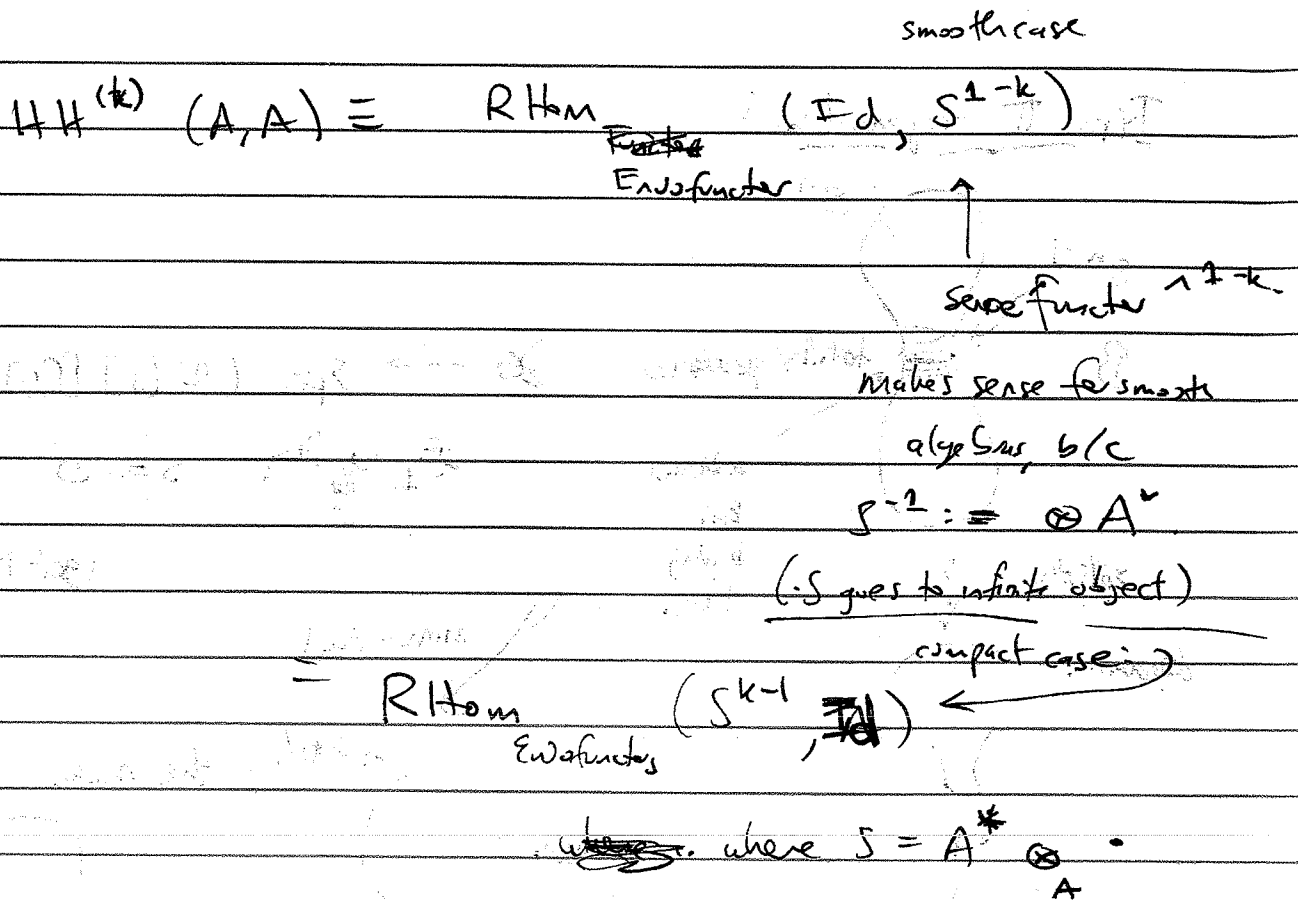 smooth case
HH^(k) (A, A) ≡ RHom (Id, S^{1-k})
Endofunctor
↑
Serre functor ^ 1-k.
makes sense for smooth
algebras, b/c
S^{-1} := ⊗ A^∨
(·S goes to infinite object)
compact case:
= RHom (S^{k-1}, Id) ←
Endofunctors
where S = A^* ⊗_A •